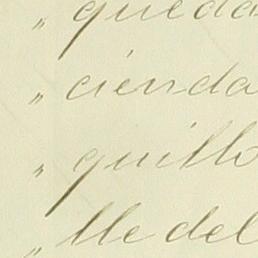 „ queda
„ cienda
„ quillo
„ lle del